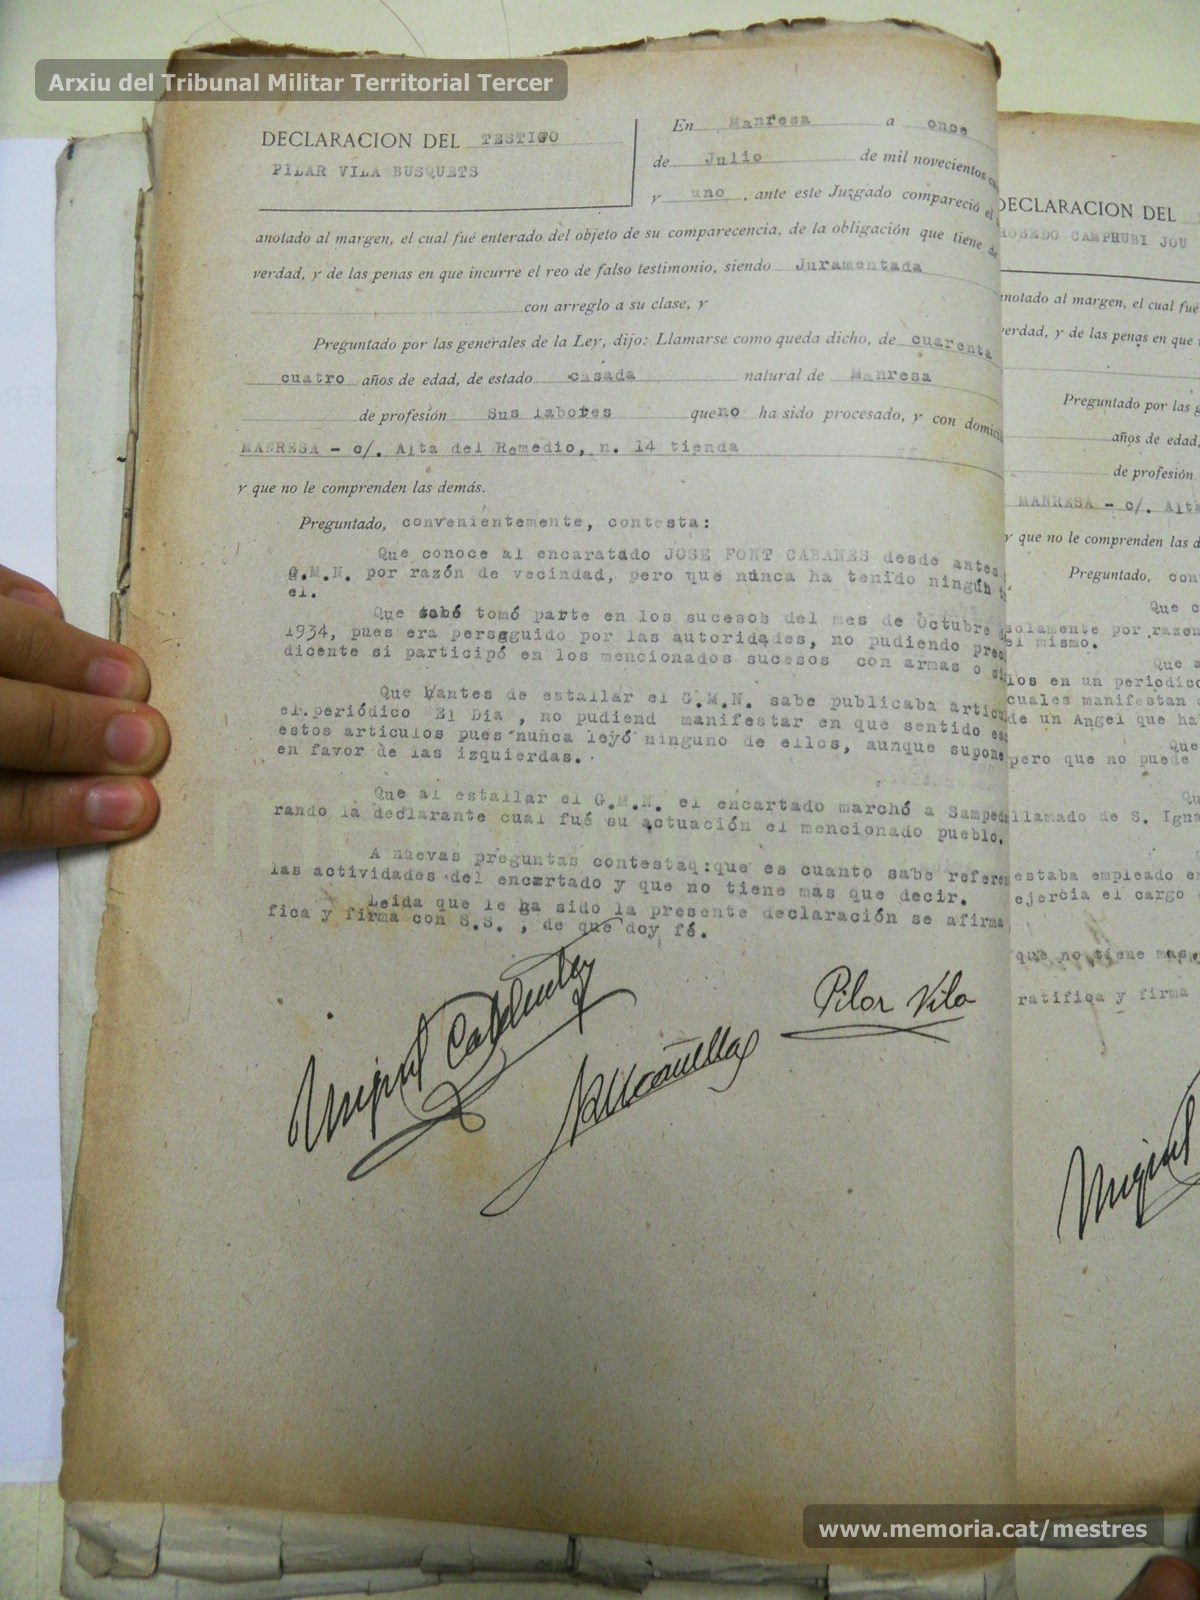 Arxiu del Tribunal Militar Territorial Tercer
DECLARACION DEL TESTIGO
PILAR VILA BUSQUETS
En Manresa a once
de Julio de mil novecientos
y uno, ante este Juzgado compareció el
anotado al margen, el cual fué enterado del objeto de su comparecencia, de la obligación que tiene de
verdad, y de las penas en que incurre el reo de falso testimonio, siendo Juramentada
con arreglo a su clase, y
Preguntado por las generales de la Ley, dijo: Llamarse como queda dicho, de cuarenta
cuatro años de edad, de estado casada natural de Manresa
de profesión Sus labores que no ha sido procesado, y con domicili
MANRESA - c/. Alta del Remedio, n. 14 tienda
y que no le comprenden las demás.
Preguntado, convenientemente, contesta:
Que conoce al encaratado JOSE FONT CABANES desde antes
G.M.N. por razón de vecindad, pero que núnca ha tenido ningún
el.
Que sabé tomó parte en los sucesos del mes de Octubre
1934, pues era perseguido por las autoridades, no pudiendo prec
dicente si participó en los mencionados sucesos con armas o si
Que antes de estallar el G.M.N. sabe publicaba articu
el periódico "El Dia", no pudiend manifestar en que sentido es
estos articulos pues nunca leyó ninguno de ellos, aunque supone
en favor de las izquierdas.
Que al estallar el G.M.N. el encartado marchó a Samped
rando la declarante cual fué su actuación el mencionado pueblo.
A nuevas preguntas contestaq:que es cuanto sabe refere
las actividades del encartado y que no tiene más que decir.
Leida que le ha sido la presente declaración se afirma
fica y firma con S.S., de que doy fé.
Miguel
Pilar Vila
DECLARACION DEL
ROSEDO CAMPRUBI JOU
anotado al margen, el cual fué
verdad, y de las penas en que
Preguntado por las g
años de edad,
de profesión
MANRESA - c/. Alt
y que no le comprenden las d
Preguntado, con
Que c
solamente por razon
el mismo.
Que s
los en un periodico
cuales manifestan
de un Angel que ha
Que
pero que no puede
Qu
llamado de S. Igna
estaba empleado en
ejercia el cargo
que no tiene mas
ratifica y firma
Miguel
www.memoria.cat/mestres